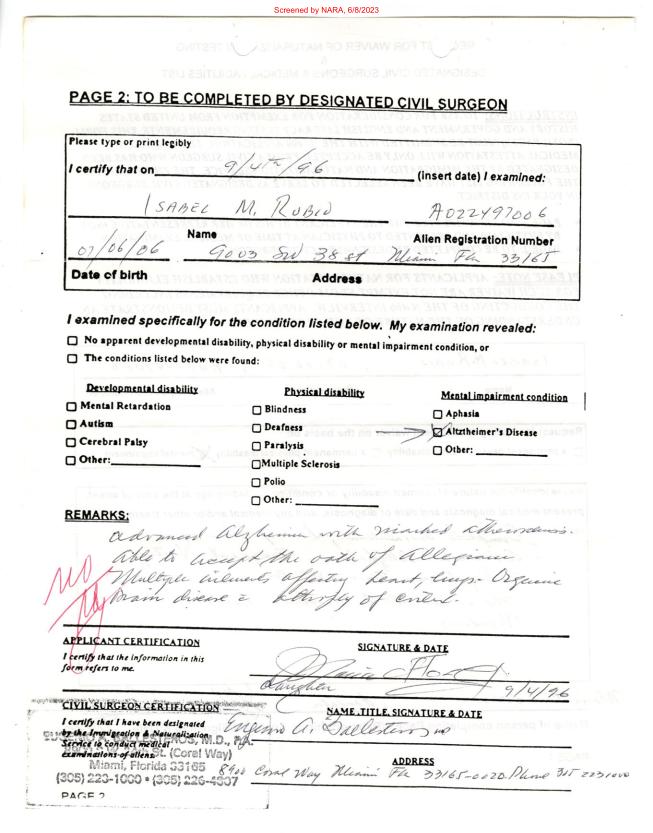 Screened by NARA, 6/8/2023
PAGE 2: TO BE COMPLETED BY DESIGNATED CIVIL SURGEON
Please type or print legibly
I certify that on 9/4th/96 (insert date) I examined:
ISABEL M. RUBIO A022497006
Name Alien Registration Number
07/06/06 9003 SW 38 st Miami Fla 33165
Date of birth Address
I examined specifically for the condition listed below. My examination revealed:
☐ No apparent developmental disability, physical disability or mental impairment condition, or
☐ The conditions listed below were found:
Developmental disability Physical disability Mental impairment condition
☐ Mental Retardation ☐ Blindness ☐ Aphasia
☐ Autism ☐ Deafness ☑ Altzheimer's Disease
☐ Cerebral Palsy ☐ Paralysis ☐ Other:
☐ Other: ☐ Multiple Sclerosis
☐ Polio
☐ Other:
REMARKS:
advanced Alzheimer with marked
Able to accept the oath of Allegiance
Multiple ailments affecting heart, lungs - Organic
brain disease atrophy of
NO
APPLICANT CERTIFICATION SIGNATURE & DATE
I certify that the information in this
form refers to me.
Daughter 9/4/96
CIVIL SURGEON CERTIFICATION NAME, TITLE, SIGNATURE & DATE
I certify that I have been designated
by the Immigration & Naturalization
Service to conduct medical
examinations of aliens.
Eugenio A. Ballesteros MD
BALLESTEROS, M.D., P.A.
St. (Coral Way)
Miami, Florida 33165
(305) 223-1000 • (305) 226-4337
ADDRESS
8900 Coral Way Miami Fla 33165-0020. Phone 305 2231000
PAGE 2